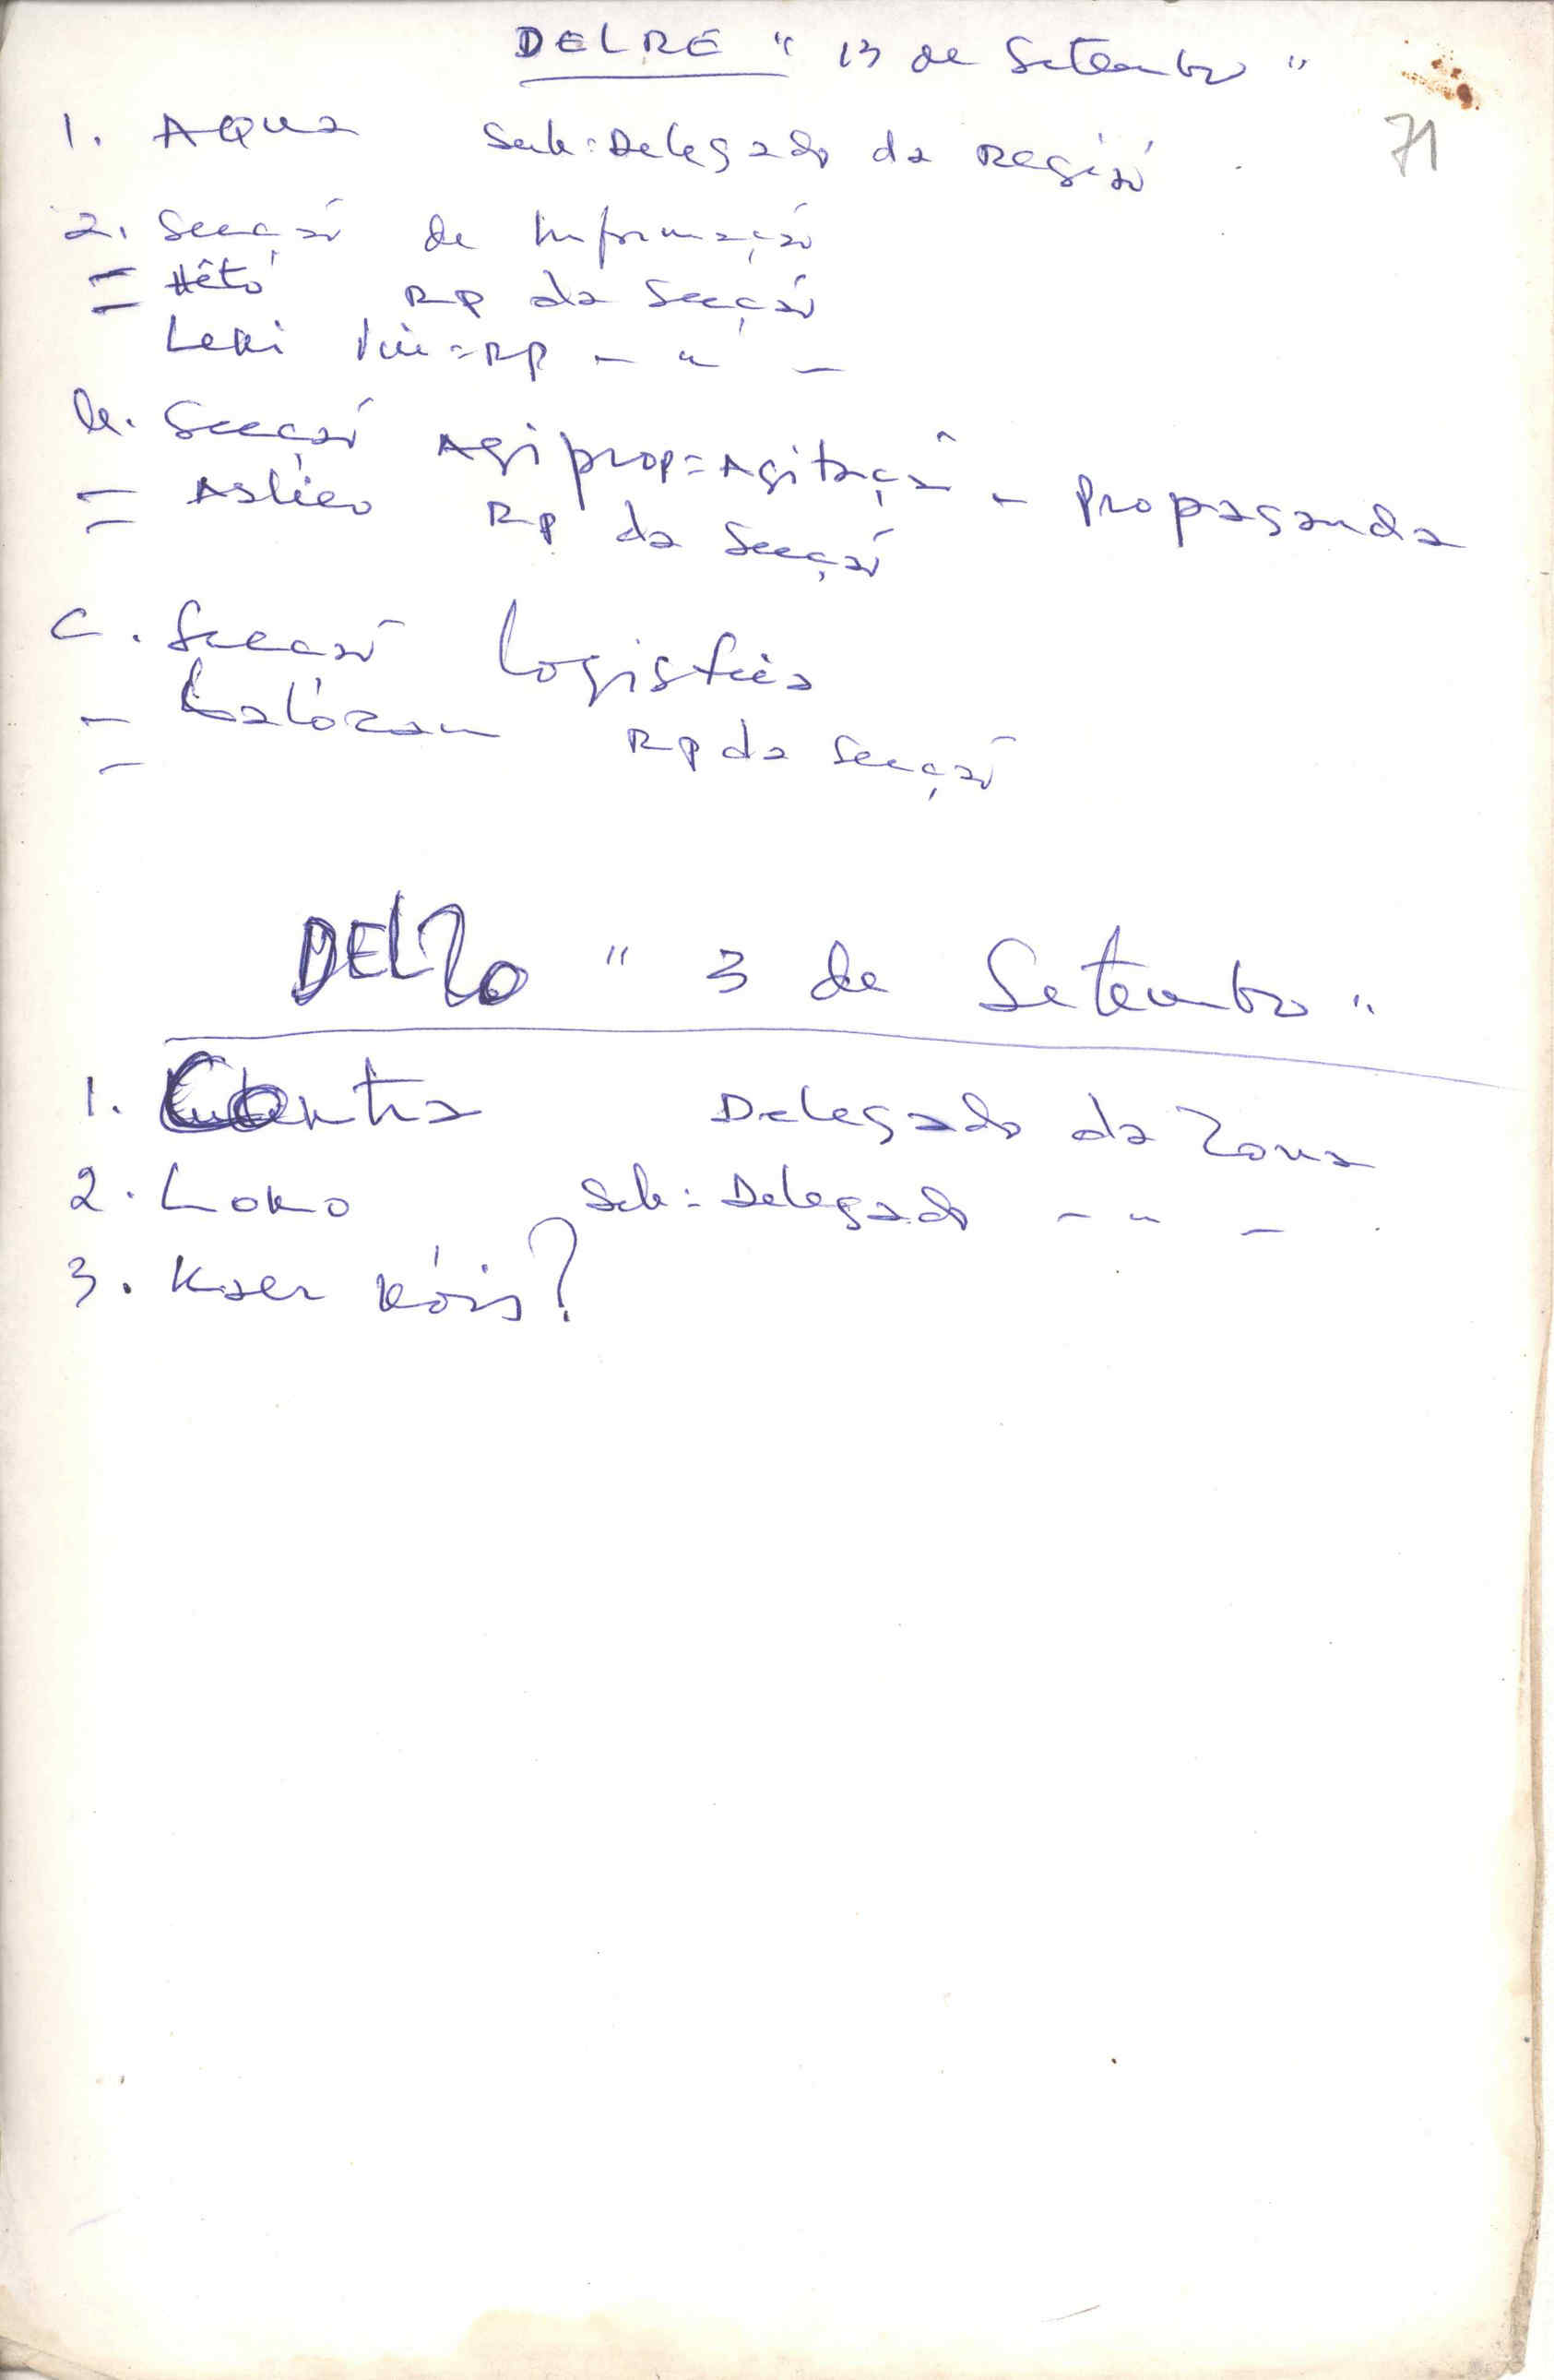 DELRE " 13 de Setembro "
71
1. AQUA Sub=Delegado da Região
2. Secção de Informação
= Hêto RP da Secção
Leki Vice=RP - " -
b. Secção Agiprop=Agitação - Propaganda
= RP da Secção
C. Secção Logística
= Lalózan RP da Secção
DELZO " 3 de Setembro "
1. Contra Delegado da Zona
2. Loko Sub=Delegado - " -
3. Kaer Kóis?